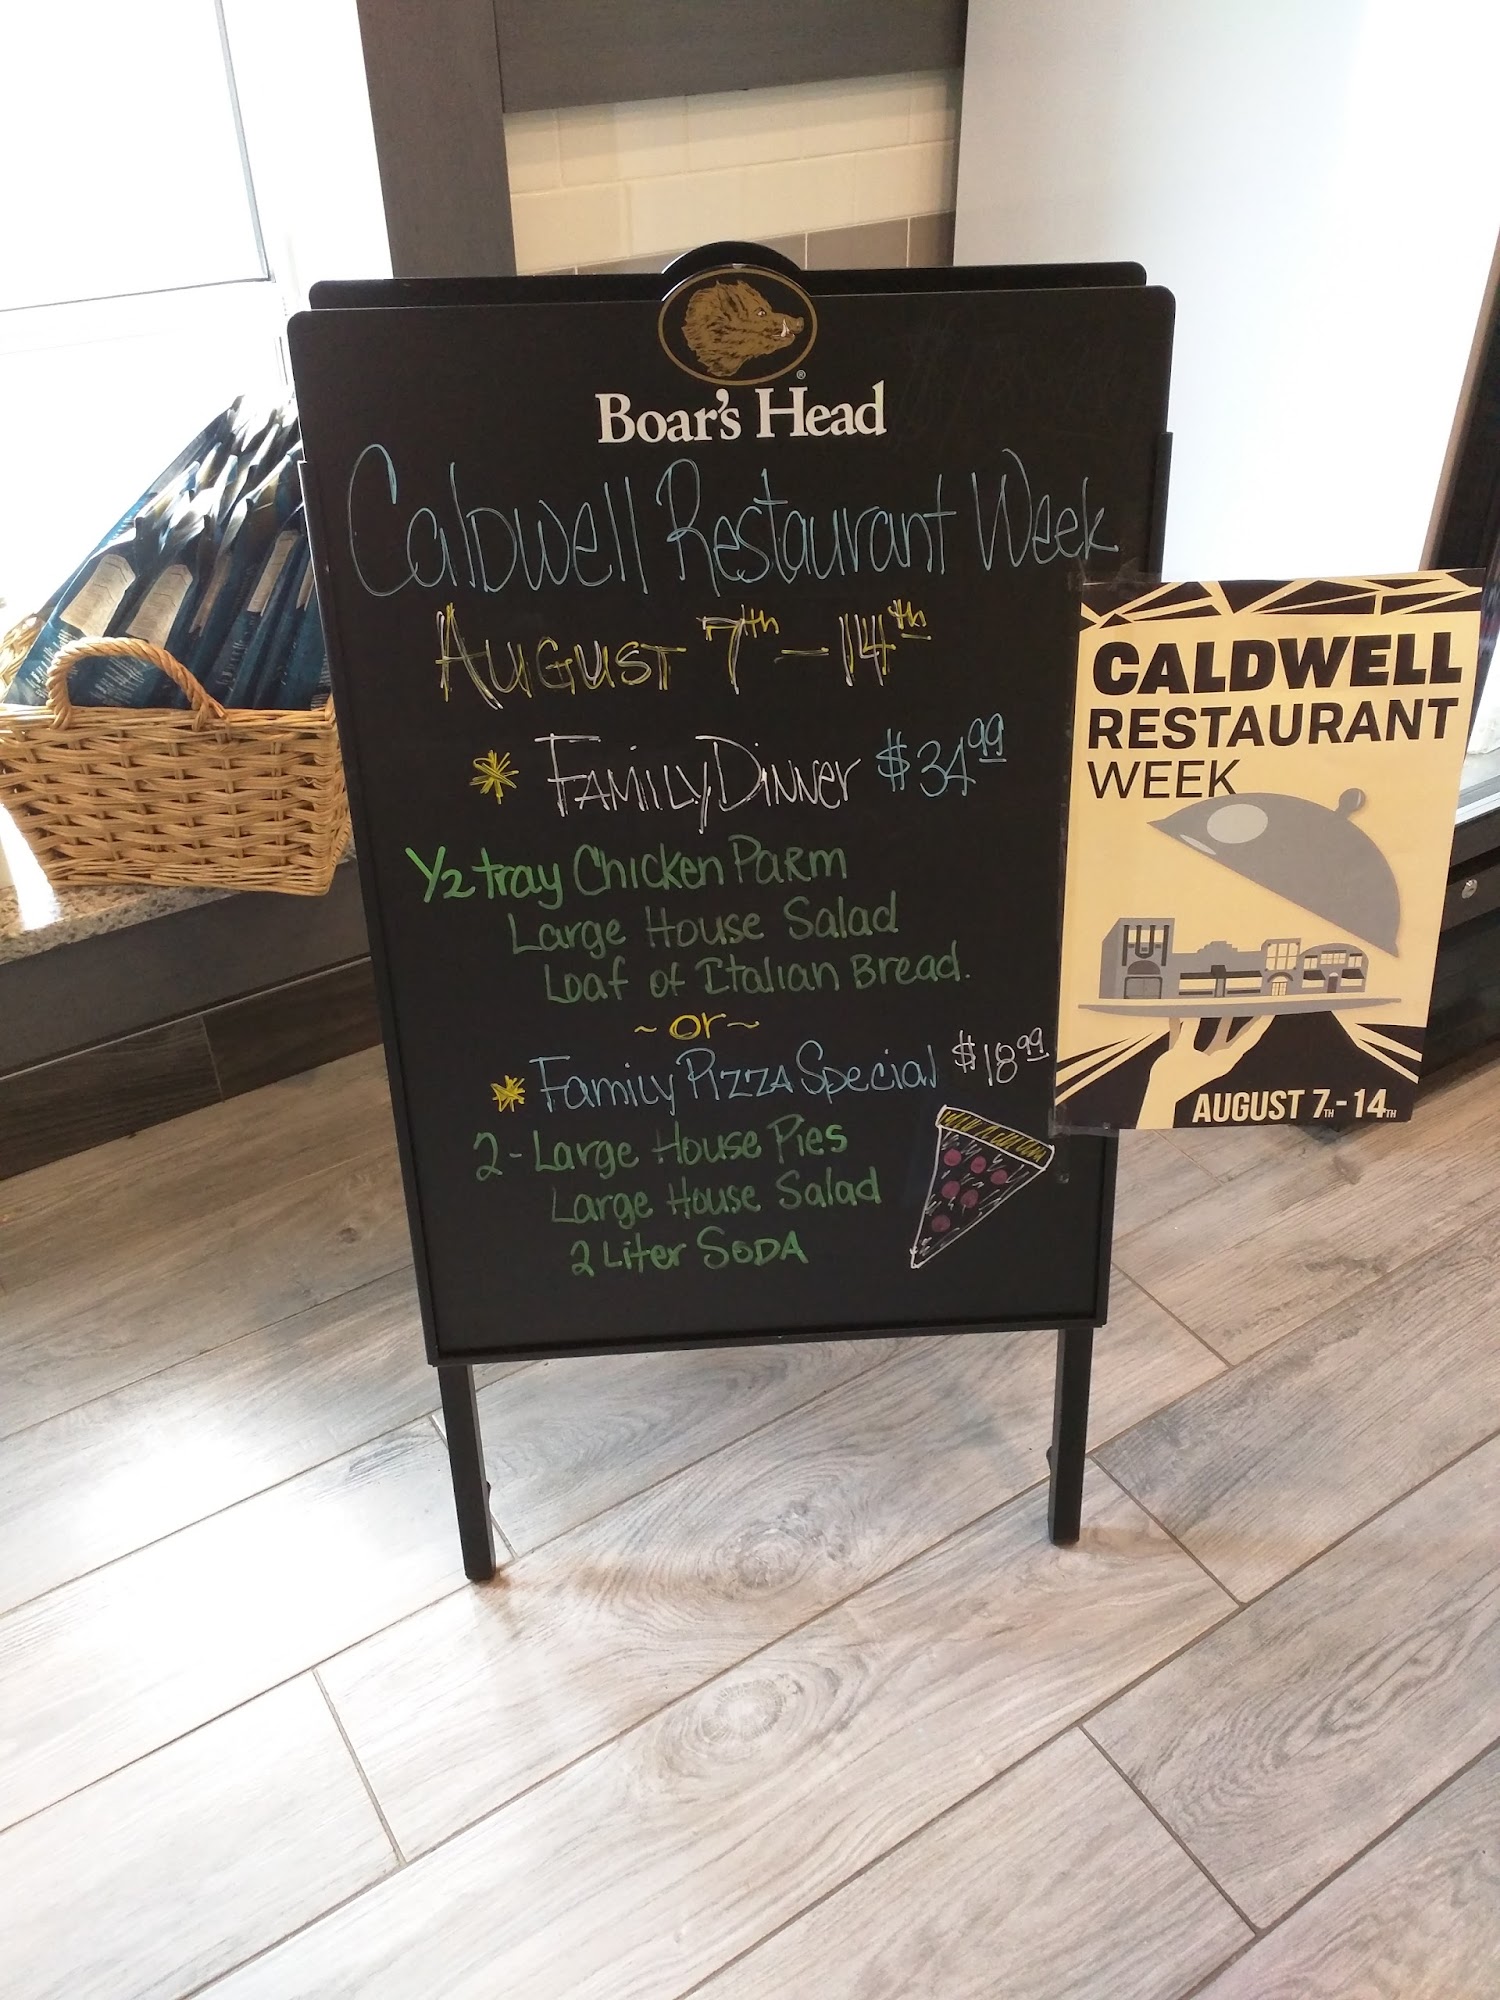 Boar's Head
Caldwell Restaurant Week
August 7th - 14th
* Family Dinner $34.99
1/2 tray Chicken Parm
Large House Salad
Loaf of Italian Bread.
~ or ~
* Family Pizza Special $18.99
2 - Large House Pies
Large House Salad
2 Liter Soda
CALDWELL
RESTAURANT
WEEK
AUGUST 7TH - 14TH